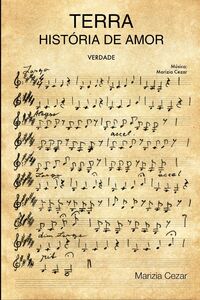 TERRA
HISTÓRIA DE AMOR
VERDADE
Música:
Marizia Cezar
accel
accel
rit
Marizia Cezar